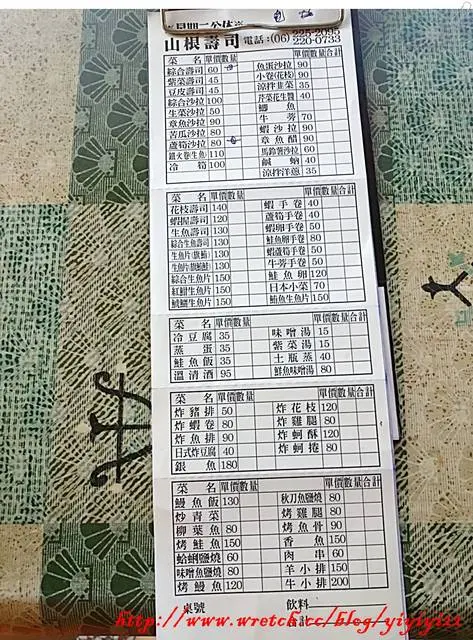 山根壽司 電話:(06) 225-2095
220-0733
菜名 單價 數量 單價 數量 合計
綜合壽司 60 魚蛋沙拉 90
紫菜壽司 45 小卷(花枝) 90
豆皮壽司 45 涼拌韭菜 35
綜合沙拉 100 芹菜花生醬 40
生菜沙拉 50 鯽魚
章魚沙拉 90 牛蒡 70
苦瓜沙拉 80 蝦沙拉 90
蘆筍沙拉 80 章魚醋 90
鐵火卷生魚 110 馬鈴薯沙拉 60
冷筍 100 鹹蚋 40
涼拌洋蔥 35
菜名 單價 數量 單價 數量 合計
花枝壽司 140 蝦手卷 40
蝦握壽司 120 蘆筍手卷 40
生魚壽司 130 蝦卵手卷 50
綜合生魚壽司 130 鮭魚卵手卷 80
生魚片(旗鮪) 130 蝦蘆筍手卷 50
生魚片(旗鮪鮭) 130 牛蒡手卷 50
綜合生魚片 150 鮭魚卵 120
紅魽生魚片 150 日本小菜 70
生魚片 150 鮪魚生魚片 150
菜名 單價 數量 單價 數量 合計
冷豆腐 35 味噌湯 15
蒸蛋 35 紫菜湯 15
鮭魚飯 35 土瓶蒸 40
溫清酒 95 鮮魚味噌湯 80
菜名 單價 數量 單價 數量 合計
炸豬排 50 炸花枝 120
炸蝦卷 80 炸雞腿 80
炸魚排 90 炸蚵酥 120
日式炸豆腐 40 炸蚵捲 80
銀魚 180
菜名 單價 數量 單價 數量 合計
鰻魚飯 130 秋刀魚鹽燒 80
炒青菜 烤雞腿 80
柳葉魚 80 烤魚骨 90
烤鮭魚 150 香魚 150
蛤蜊鹽燒 60 肉串 60
味噌魚鹽燒 80 羊小排 150
烤鰻魚 120 牛小排 200
桌號 飲料
合計
http://www.wretch.cc/blog/yiyiyiii